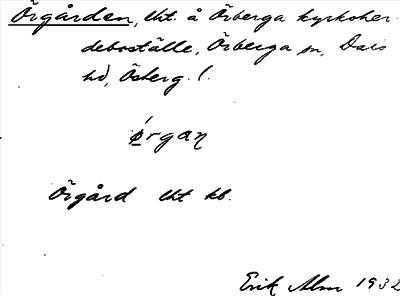 Örgården, lht. å Örberga kyrkoher-
deboställe, Örberga sn, Dals
hd, Österg. l.
ǿrgan
Örgård lht kb.
Erik Alm 1932